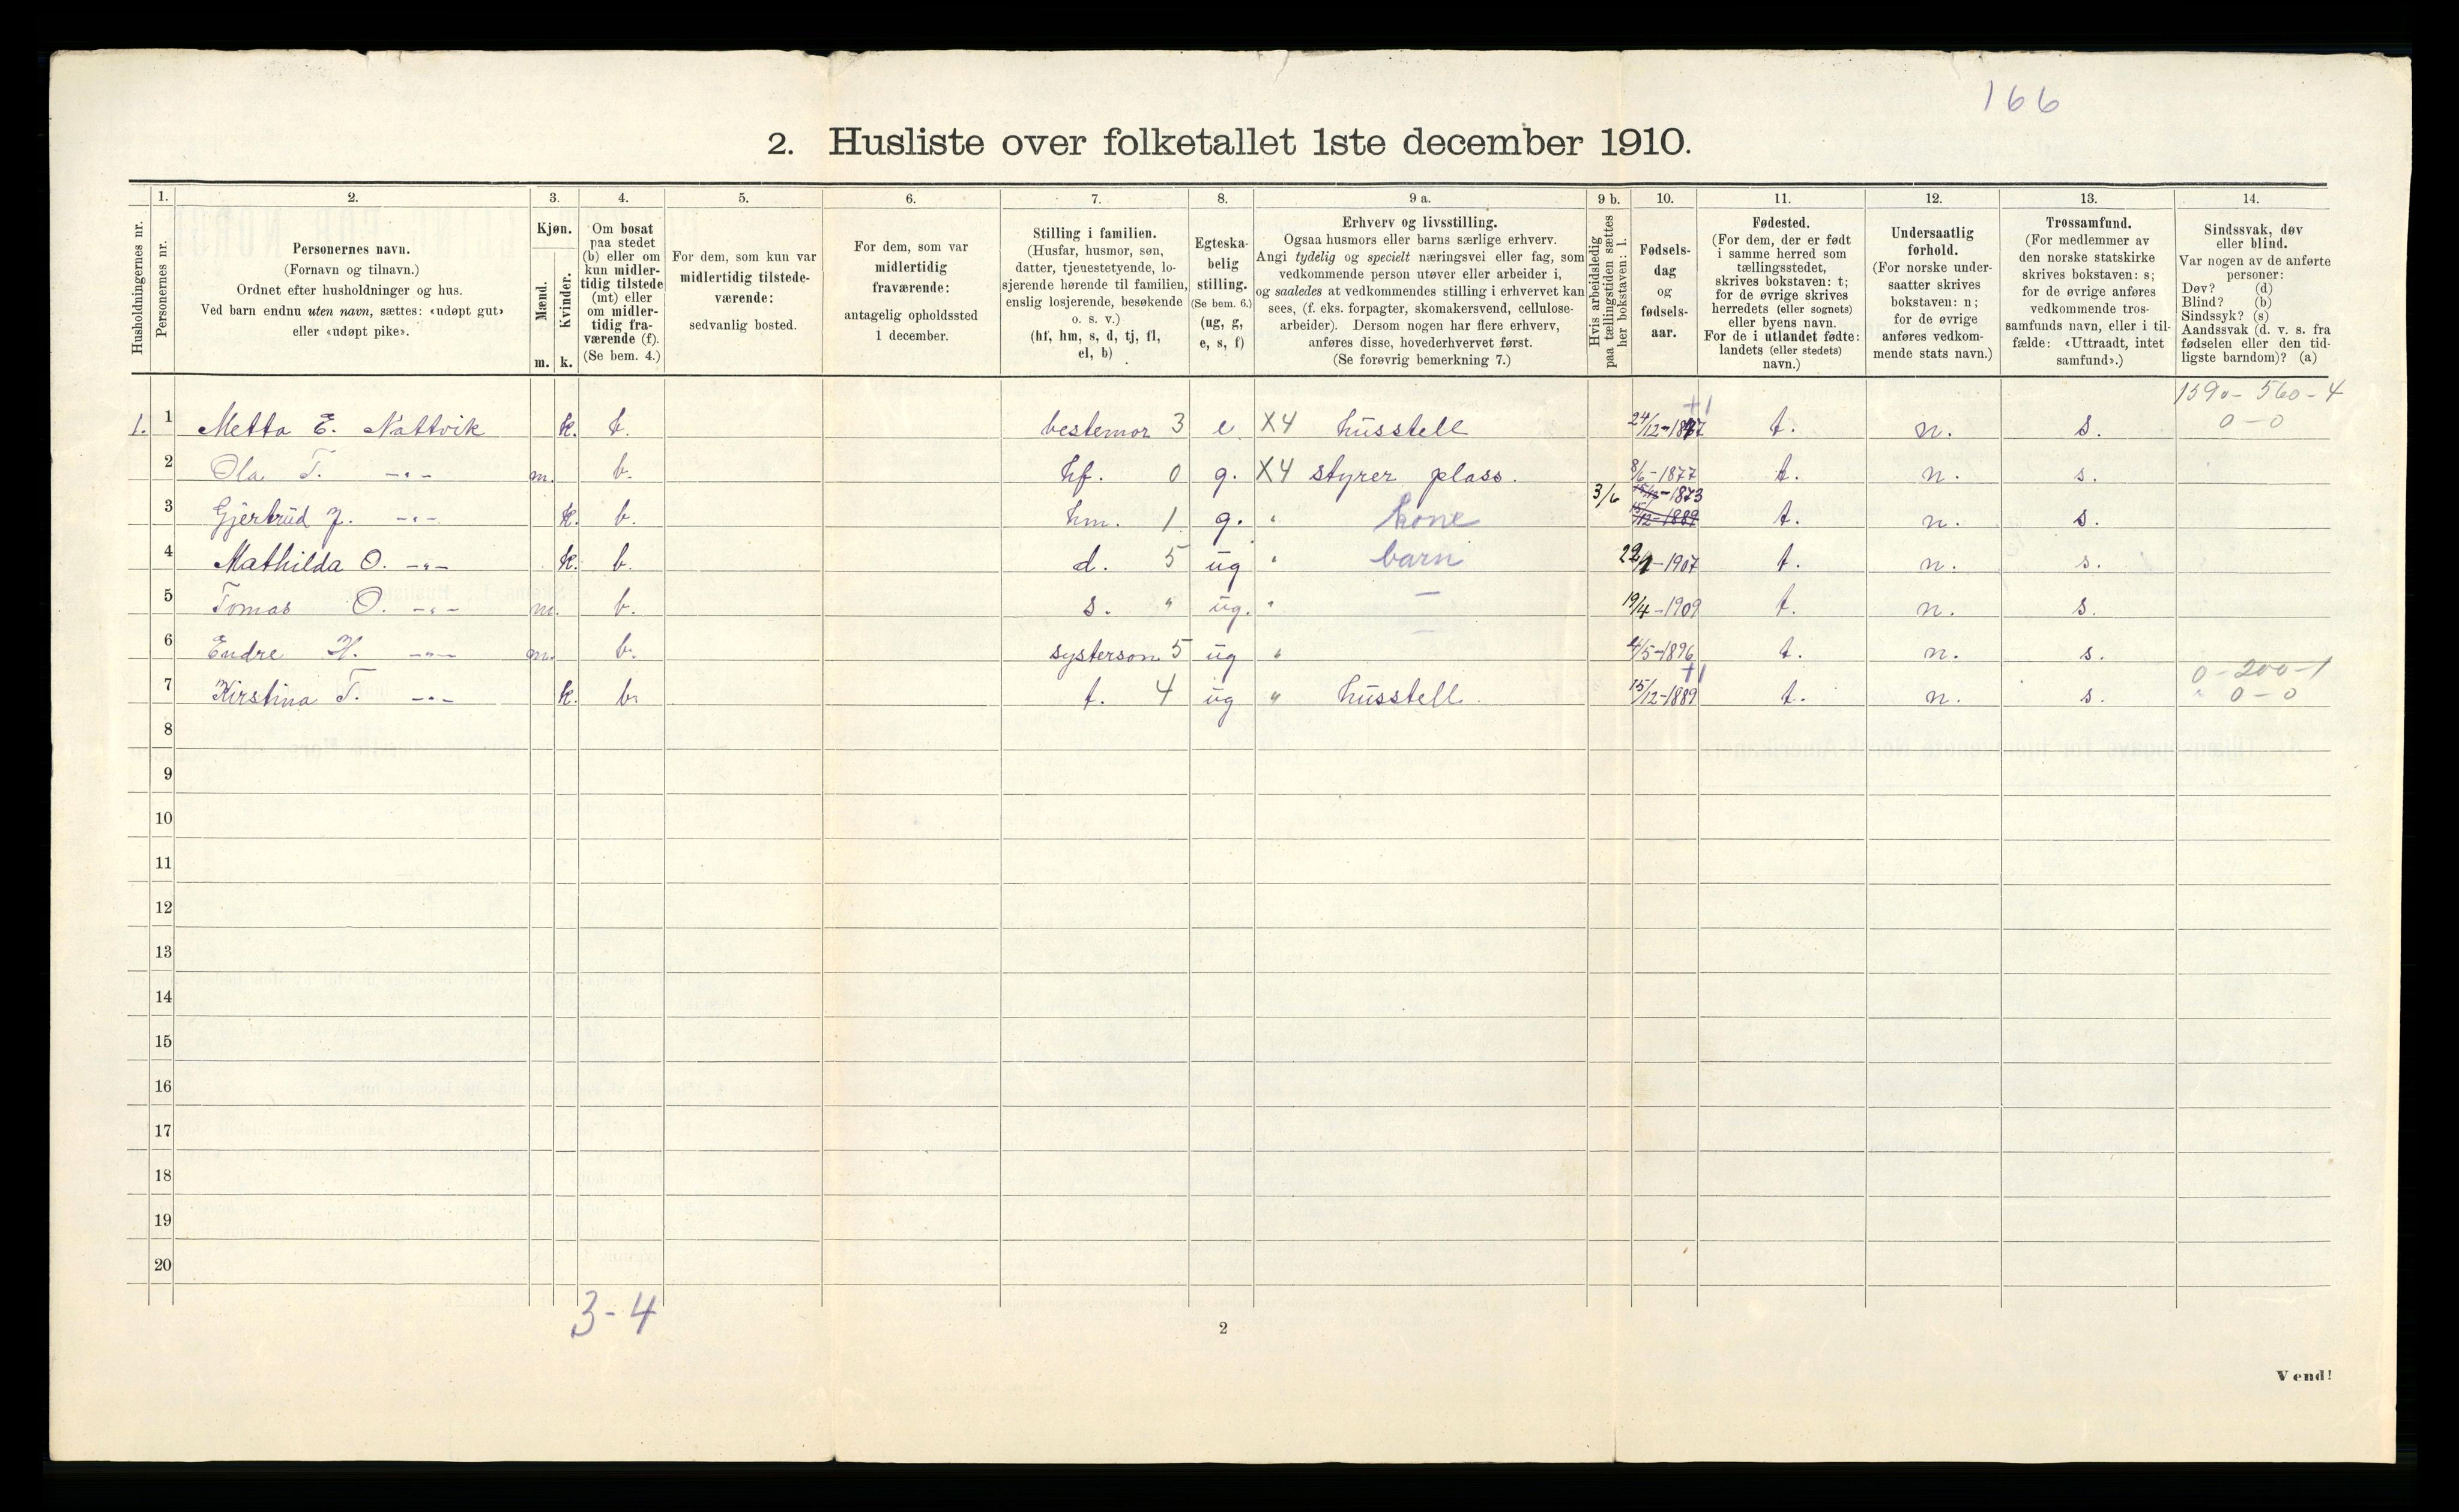 166
2. Husliste over folketallet 1ste december 1910.
Husholdningernes nr.
1.
Personernes nr.
2.
Personernes navn.
(Fornavn og tilnavn.)
Ordnet efter husholdninger og hus.
Ved barn endnu uten navn, sættes: «udøpt gut»
eller «udøpt pike».
3.
Kjøn.
Mænd.
m.
Kvinder.
k.
4.
Om bosat
paa stedet
(b) eller om
kun midler-
tidig tilstede
(mt) eller
om midler-
tidig fra-
værende (f).
(Se bem. 4.)
5.
For dem, som kun var
midlertidig tilstede-
værende:
sedvanlig bosted.
6.
For dem, som var
midlertidig
fraværende:
antagelig opholdssted
1 december.
7.
Stilling i familien.
(Husfar, husmor, søn,
datter, tjenestetyende, lo-
sjerende hørende til familien,
enslig losjerende, besøkende
o. s. v.)
(hf, hm, s, d, tj, fl,
el, b)
8.
Egteska-
belig
stilling.
(Se bem. 6.)
(ug, g,
e, s, f)
9 a.
Erhverv og livsstilling.
Ogsaa husmors eller barns særlige erhverv.
Angi tydelig og specielt næringsvei eller fag, som
vedkommende person utøver eller arbeider i,
og saaledes at vedkommendes stilling i erhvervet kan
sees, (f. eks. forpagter, skomakersvend, cellulose-
arbeider). Dersom nogen har flere erhverv,
anføres disse, hovederhvervet først.
(Se forøvrig bemerkning 7.)
9 b.
Hvis arbeidsledig
paa tællingstiden sættes
her bokstaven: l.
10.
Fødsels-
dag
og
fødsels-
aar.
11.
Fødested.
(For dem, der er født
i samme herred som
tællingsstedet,
skrives bokstaven: t;
for de øvrige skrives
herredets (eller sognets)
eller byens navn.
For de i utlandet fødte:
landets (eller stedets)
navn.)
12.
Undersaatlig
forhold.
(For norske under-
saatter skrives
bokstaven: n;
for de øvrige
anføres vedkom-
mende stats navn.)
13.
Trossamfund.
(For medlemmer av
den norske statskirke
skrives bokstaven: s;
for de øvrige anføres
vedkommende tros-
samfunds navn, eller i til-
fælde: «Uttraadt, intet
samfund».)
14.
Sindssvak, døv
eller blind.
Var nogen av de anførte
personer:
Døv? (d)
Blind? (b)
Sindssyk? (s)
Aandssvak (d. v. s. fra
fødselen eller den tid-
ligste barndom)? (a)
+1 1590-560-4
1. 1 Metta E. Nattvik k. b. bestemor 3 e X4 husstell 24/12- t. n. s. 0-0
2 Ola T. -"- m. b. hf. 0 g. X4 styrer plass. 8/6-1877 t. n. s.
3/6 -1873
3 Gjertrud J. -"- k. b. hm. 1 g. " kone 15/12-1889 t. n. s.
4 Mathilda O. -"- k. b. d. 5 ug " barn -1907 t. n. s.
5 Tomas O. -"- m. b. s. " ug. " — 19/4-1909 t. n. s.
6 Endre H. -"- m. b. systerson 5 ug " — /5-1896 t. n. s.
+1 0-200-1
7 Kirstina T. -"- k. b. t. 4 ug " husstell. 15/12-1889 t. n. s. " 0-0
8
9
10
11
12
13
14
15
16
17
18
19
20
3-4
2
Vend!